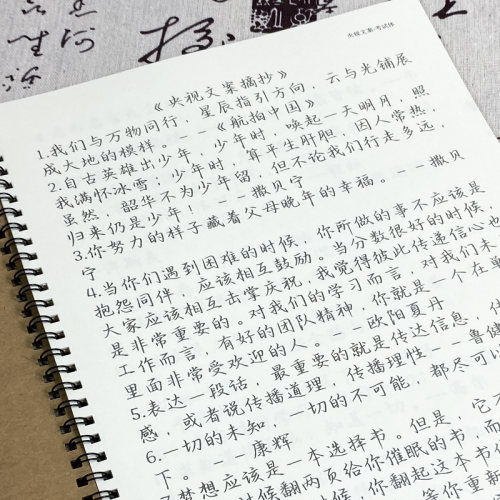 央视文案·考试体
《央视文案摘抄》
1.我们与万物同行，星辰指引方向，云与光铺展
成大地的模样。--《航拍中国》
2.自古英雄出少年，少年时，唤起一天明月，照
我满怀冰雪；少年时，算平生肝胆，因人常热，
虽然，韶华不为少年留，但不论我们行走多远，
归来仍是少年！--撒贝宁
3.你努力的样子藏着父母晚年的幸福。--撒贝
宁
4.当你们遇到困难的时候，你所做的事不应该是
抱怨同伴，应该相互鼓励。当分数很好的时候，
大家应该相互击掌庆祝，我觉得彼此传递信心
是非常重要的。对我们的学习而言，对我们未
工作而言，有好的团队精神，你就是一个在单
里面非常受欢迎的人。--欧阳夏丹
5.表达一段话，最重要的就是传达信息，传
感，或者说传播道理，传播理性--鲁健
6.一切的未知，一切的不可能，都尽可
下。--康辉
7.梦想应该是一本选择书。但是，它不
时候翻两页给你催眠的书，而
候，你翻起这本书